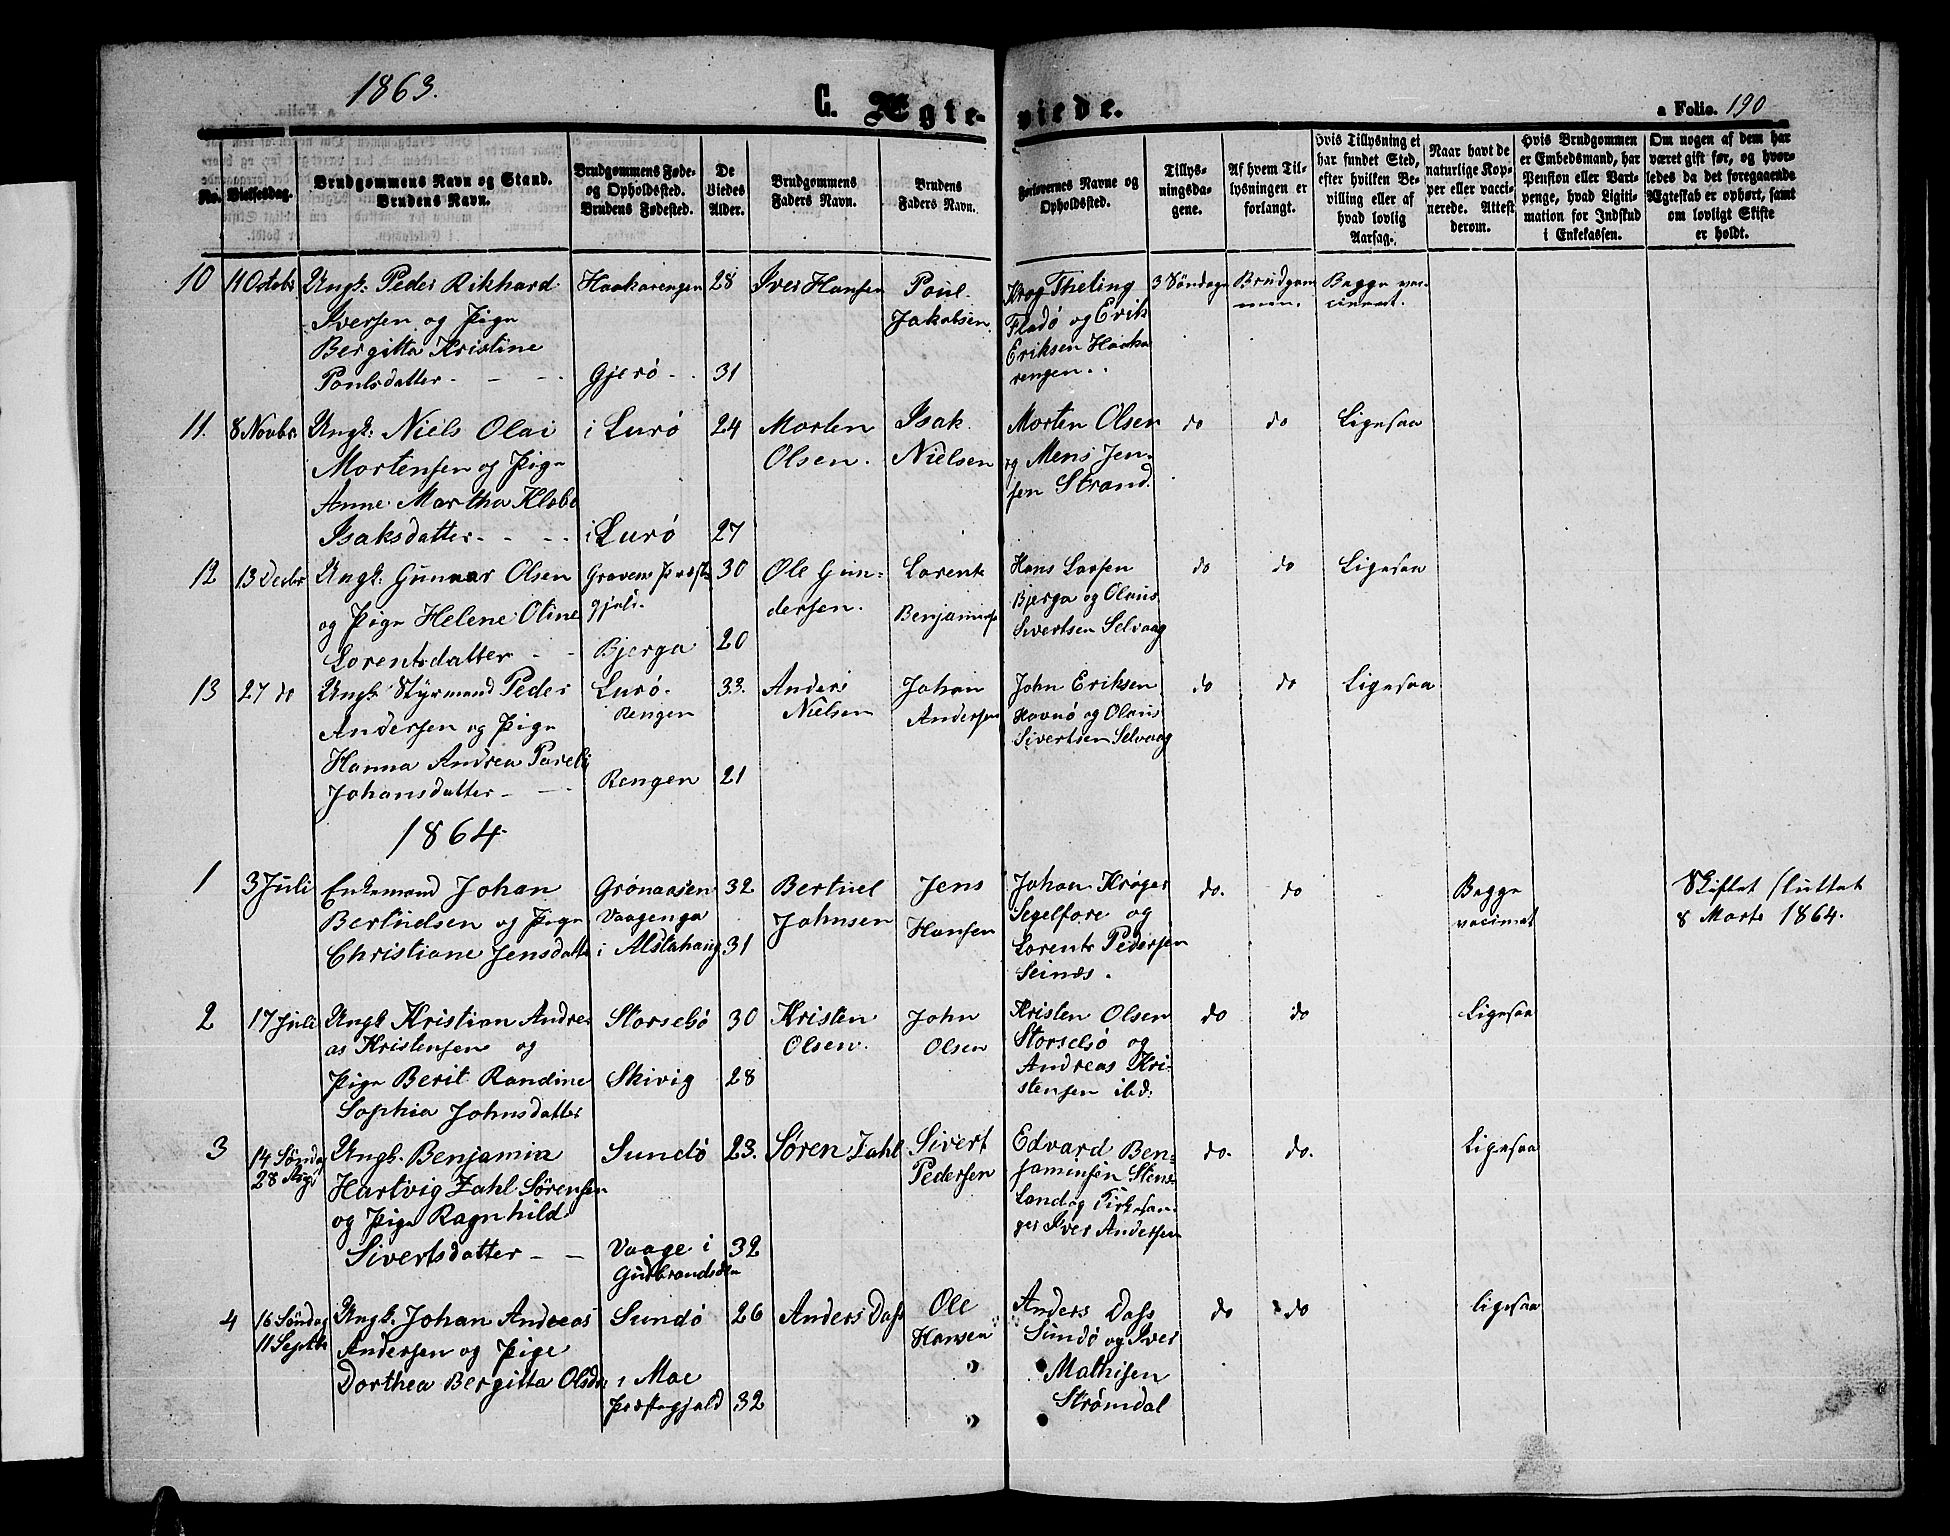 1863.
C. Ægteviede.
a Folio. 190
No.
Vielsesdag.
Brudgommens Navn og Stand.
Brudens Navn.
Brudgommens Føde-
og Opholdsted.
Brudens Fødested.
De
Viedes
Alder.
Brudgommens
Faders Navn.
Brudens
Faders Navn.
Forlovernes Navne og
Opholdssted.
Tillys-
ningsda-
gene.
Af hvem Til-
lysningen er
forlangt.
Hvis Tillysning ei
har fundet Sted,
efter hvilken Be-
villing eller af
hvad lovlig
Aarsag.
Naar havt de
naturlige Kop-
per eller vacci-
nerede. Attest
derom.
Hvis Brudgommen
er Embedsmand, har
Pension eller Vart-
penge, hvad Ligiti-
mation for Indskud
i Enkekassen.
Om nogen af dem har
været gift før, og hvor-
ledes da det foregaaende
Ægteskab er ophørt, samt
om lovligt Skifte
er holdt.
10 11 Octobr Ungk. Peder Rikhard
Iversen og Pige
Bergitta Kristine
Poulsdatter - - -
Haakarengen 28
Gjerø - 31
Iver Hansen
Poul
Jakobsen
Krog Theting
Fladø og Erik
Eriksen Haaka
rengen.
3 Søndage
Brudgom
men.
Begge vac
cineret.
11. 8 Novbr Ungk. Niels Olai
Mortensen og Pige
Anne Martha Klebo
Isaksdatter - - -
i Lurø 24
i Lurø 27
Morten
Olsen.
Isak
Nielsen
Morten Olsen
og Mens Jen-
sen Strand.
do do Ligesaa
12 13 Decbr Ungk. Gunnar Olsen
og Pige Helene Oline
Lorentsdatter - -
Gravens Præste
gjeld. 30
Bjerga 20
Ole Gun-
dersen.
Lorents
Benjamins
Hans Larsen
Bjerga og Olaus
Sivertsen Selvaag
do do Ligesaa
13 27 do Ungk. Styrmand Peder
Andersen og Pige
Hanna Andrea Pareli
Johansdatter - -
Lurø- 33.
Rengen
Rengen 21
Anders
Nielsen
Johan
Andersen
John Eriksen
Havnø og Olaus
Sivertsen Selvaag
do do Ligesaa
1864
1 3 Juli Enkemand Johan
Bertielsen og Pige
Christiane Jensdatter
Grønaasen 32
Vaagenga
i Alstahaug 31
Bertuel
Johnsen
Jens
Hansen
Johan Krøger
Segelfore og
Lorents Pedersen
Seines.
do. do
Begge
vacinat
Skiftet sluttet
8 Marts 1864.
2 17 Juli Ungk Kristian Andre
as Kristensen og
Pige Berit Randine
Sophia Johnsdatter
Storselsø 30
Skivig 28
Kristen
Olsen.
John
Olsen
Kristen Olsen
Storselsø og
Andreas Kri-
stensen ibd:
do do Ligesaa
3 14 Søndag
28 Aug
Ungk. Benjamin
Hartvig Zahl Sørensen
og Pige Ragnhild
Sivertsdatter - -
Sundø 23.
Vaage i 32
Gudbrandsdalen
Søren Zahl
Sivert
Pedersen
Edvard Ben-
jaminsen Stens-
land og Kirkesan-
ger Iver Andersen
do. do. Ligesaa
4 16 Søndag
11 Septbr
Ungk. Johan Andreas
Andersen og Pige
Dorthea Bergitta Olsdtr
Sundø 26
i Moe
Præstegjeld 32
Anders Dass
Ole
Hansen
Anders Dass
Sundø og Iver
Mathisen
Strømdal
do do ligesaa